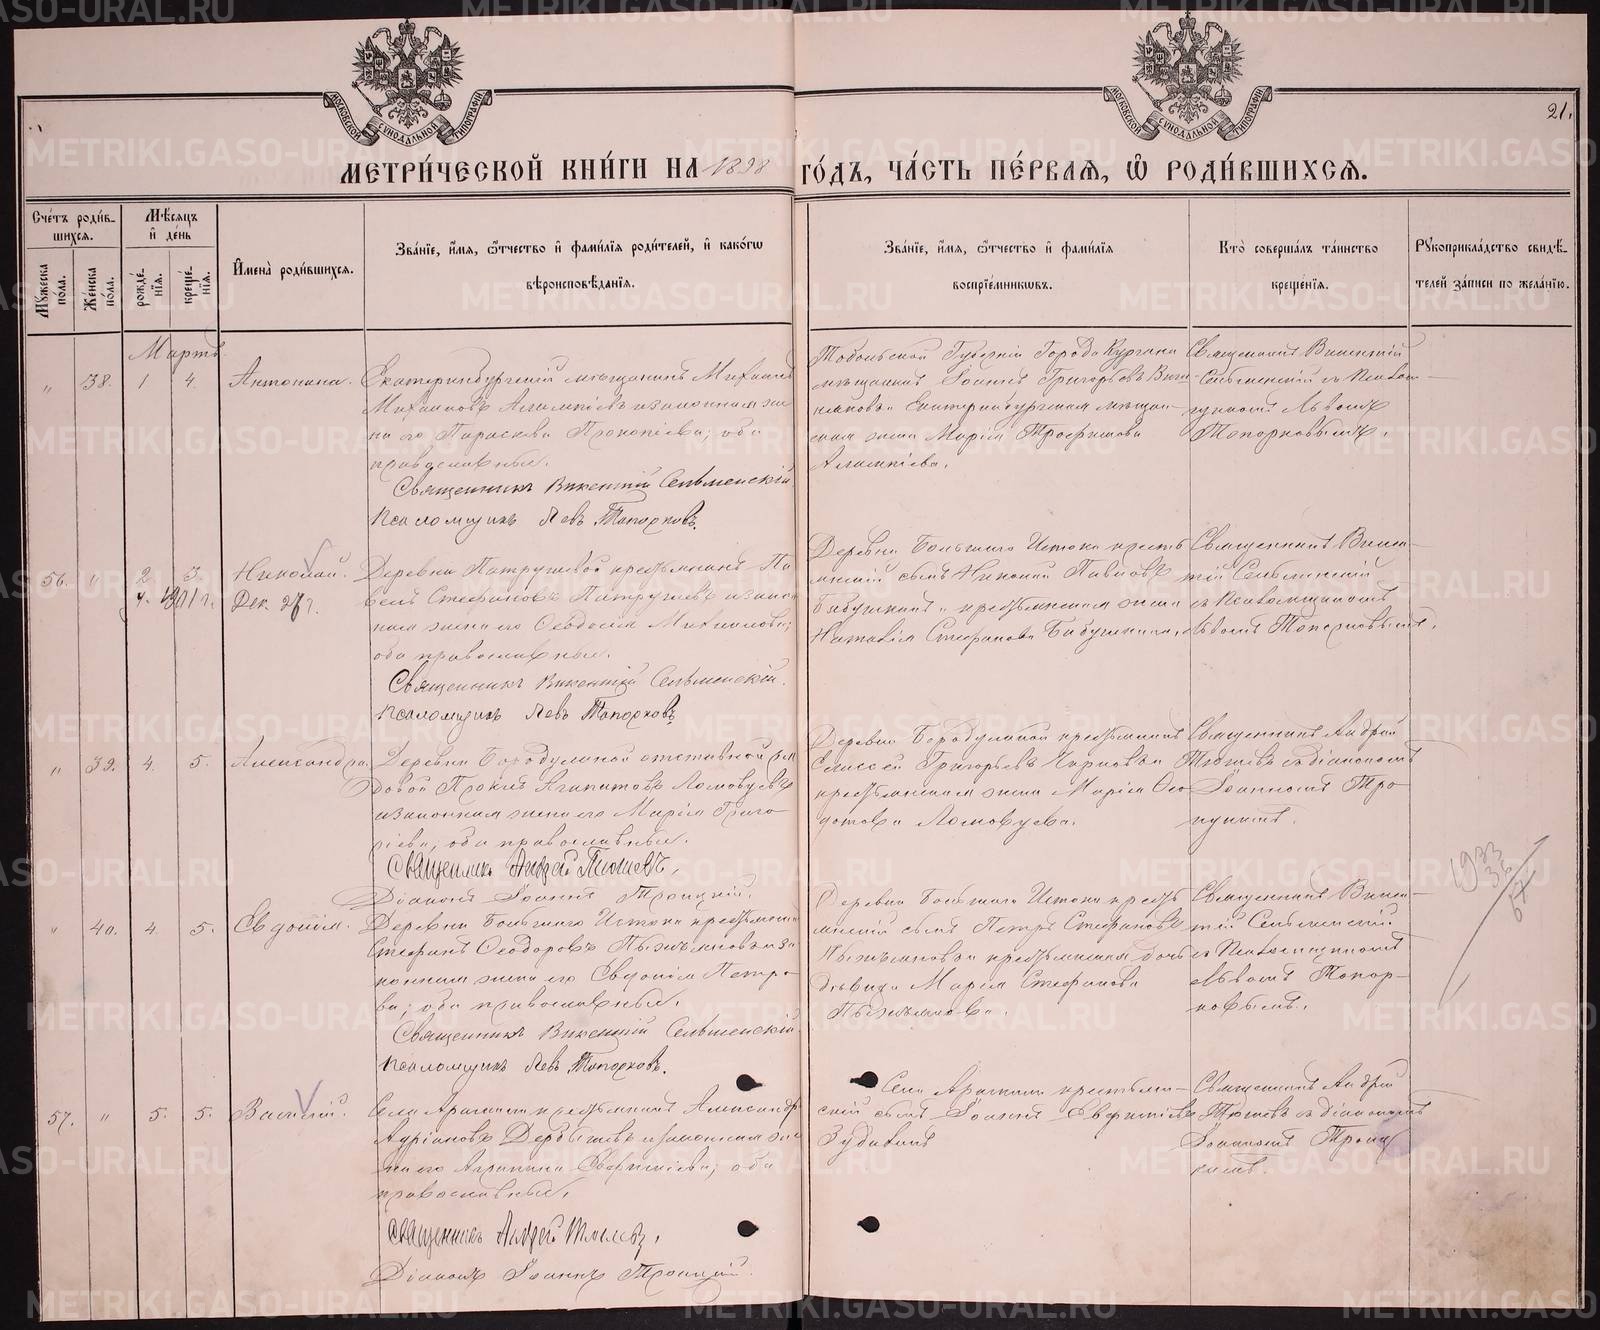 МЕТРИ́ЧЕСКОЙ КНИ́ГИ НА 1898 ГО́ДЪ, ЧА́СТЬ ПЕ́РВАѦ, Ѽ РОДИ́ВШИХСѦ.
21.
Сче́тъ роди́в-
шихсѧ.
Мѣ́сѧцъ
и҆ де́нь
Мꙋ́жеска
пола.
Же́нска
пола.
рожде́-
нїѧ.
креще́-
нїѧ.
И҆мена̀ роди́вшихсѧ.
Зва́нїе, и҆́мѧ, ѻ҆́тчество и҆ фами́лїѧ роди́телей, и҆ како́гѡ
вѣроисповѣ́данїѧ.
Зва́нїе, и҆́мѧ, ѻ҆́тчество и҆ фами́лїѧ
воспрїе́мникѡвъ.
Кто̀ соверша́лъ та́инство
креще́нїѧ.
Рꙋкоприкла́дство свидѣ́-
телей за́писи по жела́нїю.
Мартъ
„ 38. 1 4. Антонина.
Екатеринбургскій мѣщанинъ Михаилъ
Михаиловъ и законная же-
на его Параскева Прокопіева; оба
православные.
Священникъ Викентій Сельменскій
Псаломщикъ Левъ Топорковъ.
Тобольской Губерніи Города Кургана
мѣщанинъ Іоаннъ Григорьевъ
и Екатеринбургская мѣщан-
ская жена Марія Трофимова
Священникъ Викентій
Сельменскій съ Псалом-
щикомъ Львомъ
Топорковымъ.
56. „ 2 3 Николай.
Дек. 27 г.
Деревни Патрушевой крестьянинъ Па-
велъ Стефановъ Патрушевъ и закон-
ная жена его Ѳеодосія Михаилова;
оба православные.
Священникъ Викентій Сельменскій.
Псаломщикъ Левъ Топорковъ
Деревни Большаго Истока кресть-
янскій сынъ Николай Павловъ
Бабушкинъ и крестьянская жена
Наталія Стефанова Бабушкина.
Священникъ Викен-
тій Сельменскій
съ Псаломщикомъ
Львомъ Топорковымъ.
„ 39. 4. 5. Александра.
Деревни Бородулиной отставной ря-
довой Проклъ Агапитовъ Ломовцевъ
и законная жена его Марія Григо-
ріева; оба православные.
Священникъ Андрей Тюшевъ.
Діаконъ Іоаннъ Троицкій.
Деревни Бородулиной крестьянинъ
Елиссей Григорьевъ и
крестьянская жена Марія Ѳео-
дотова Ломовцева.
Священникъ Андрей
Тюшевъ съ діакономъ
Іоанномъ Тро-
ицкимъ.
„ 40. 4. 5. Евдокія.
Деревни Большаго Истока крестьянинъ
Стефанъ Ѳеодоровъ Пыжьяновъ и за-
конная жена его Евдокія Петро-
ва; оба православные.
Священникъ Викентій Сельменскій
Псаломщикъ Левъ Топорковъ.
Деревни Большаго Истока кресть-
янскій сынъ Петръ Стефановъ
Пыжьяновъ и крестьянская дочь
дѣвица Марія Стефанова
Пыжьянова.
Священникъ Викен-
тій Сельменскій
съ Псаломщикомъ
Львомъ Топор-
ковымъ.
1933
36
67
57. „ 5. 5. Василій.
Села Арамили крестьянинъ Александръ
Адріановъ Дербышевъ и законная же-
на его Агрипина Евфиміева; оба
православные.
Священникъ Андрей Тюшевъ.
Діаконъ Іоаннъ Троицкій.
Села Арамили крестьян-
скій сынъ Іоаннъ Евфиміевъ
Зудихинъ
Священникъ Андрей
Тюшевъ съ діакономъ
Іоанномъ Троиц-
кимъ.